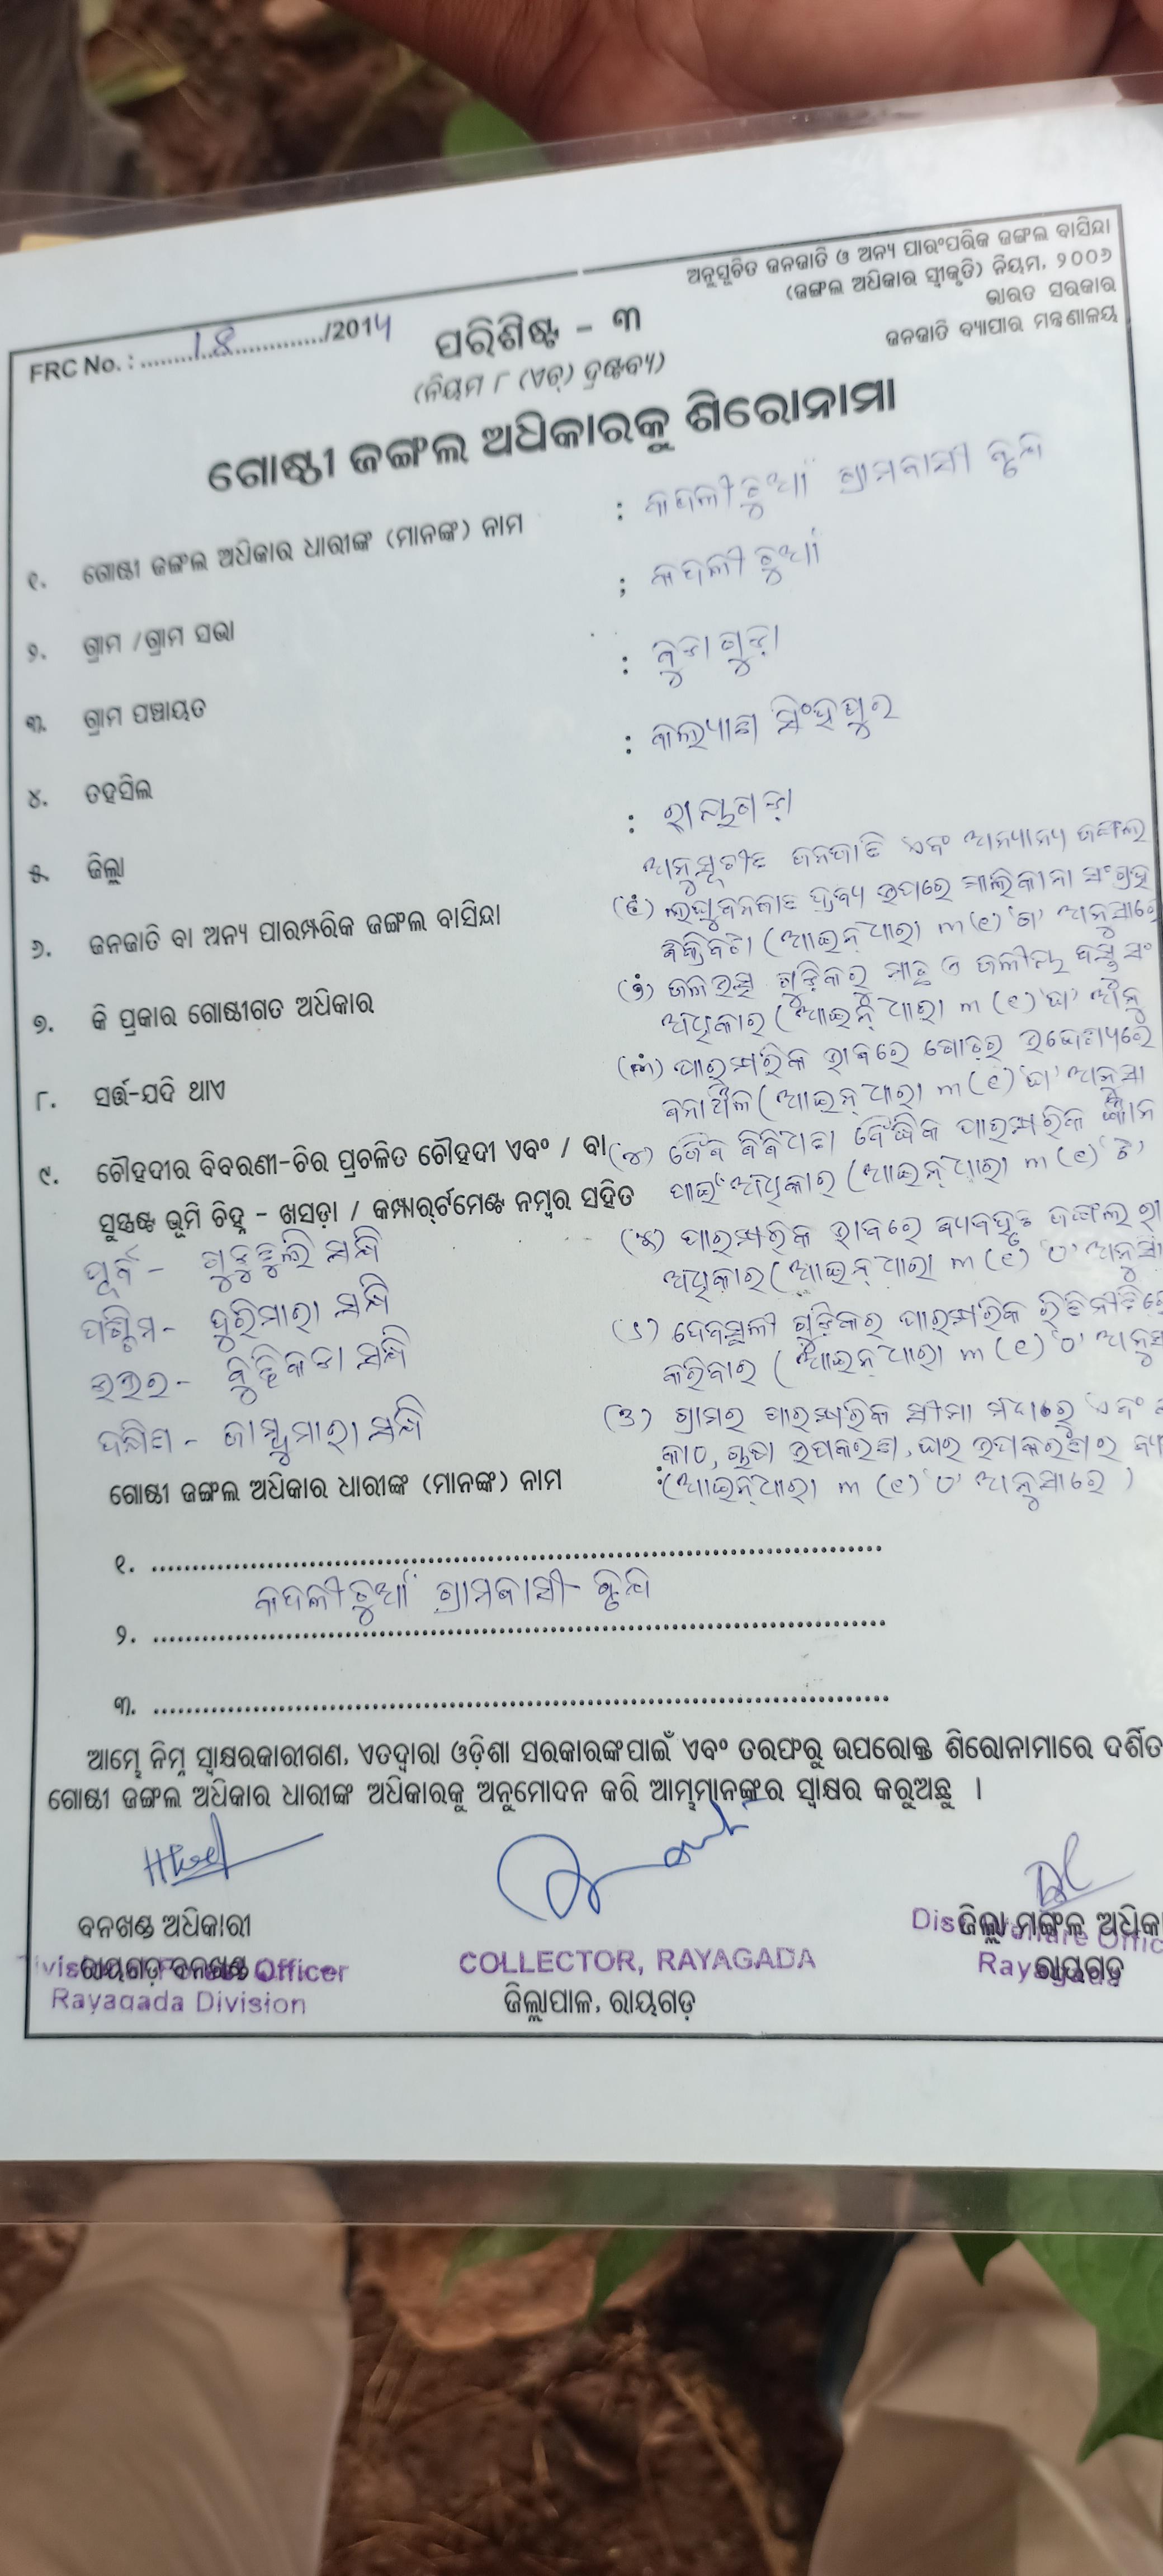 ଅନୁସୂଚିତ ଜନଜାତି ଓ ଅନ୍ୟ ପାରଂପରିକ ଜଙ୍ଗଲ ବାସିନ୍ଦା
(ଜଙ୍ଗଲ ଅଧିକାର ସ୍ୱୀକୃତି) ନିୟମ, ୨୦୦୬
ଭାରତ ସରକାର
ଜନଜାତି ବ୍ୟାପାର ମନ୍ତ୍ରଣାଳୟ
FRC No. : ........18............/2014
ପରିଶିଷ୍ଟ - ୩
(ନିୟମ ୮ (ଏଚ୍) ଦ୍ରଷ୍ଟବ୍ୟ)
ଗୋଷ୍ଠୀ ଜଙ୍ଗଲ ଅଧିକାରକୁ ଶିରୋନାମା
୧. ଗୋଷ୍ଠୀ ଜଙ୍ଗଲ ଅଧିକାର ଧାରୀଙ୍କ (ମାନଙ୍କ) ନାମ : କଦଳୀଚୁଆଁ ଗ୍ରାମବାସୀ ବୃନ୍ଦ
୨. ଗ୍ରାମ /ଗ୍ରାମ ସଭା : କଦଳୀଚୁଆଁ
୩. ଗ୍ରାମ ପଞ୍ଚାୟତ : ବୁଡାଗୁଡ଼ା
୪. ତହସିଲ : କଲ୍ୟାଣ ସିଂହପୁର
୫. ଜିଲ୍ଲା : ରାୟଗଡ଼ା
୬. ଜନଜାତି ବା ଅନ୍ୟ ପାରମ୍ପରିକ ଜଙ୍ଗଲ ବାସିନ୍ଦା ଅନୁସୂଚୀତ ଜନଜାତି ଏବଂ ଅନ୍ୟାନ୍ୟ ଜଙ୍ଗଲ
୭. କି ପ୍ରକାର ଗୋଷ୍ଠୀଗତ ଅଧିକାର
(୧) ଲଘୁବନଜାତ ଦ୍ରବ୍ୟ ଉପରେ ମାଲିକାନା ସଂଗ୍ରହ
ବିକ୍ରିବଟା (ଆଇନ୍ ଧାରା ୩(୧)'ଗ' ଅନୁସାରେ
(୨) ଜଳଉତ୍ସ ଗୁଡ଼ିକରୁ ମାଛ ଓ ଜଳୀୟ ବସ୍ତୁ ସଂ
ଅଧିକାର (ଆଇନ୍ ଧାରା ୩(୧)'ଘ' ଅନୁ
(୩) ପାରମ୍ପରିକ ଭାବରେ ଗୋଚର ଉଦ୍ଦେଶ୍ୟରେ
ବନାଞ୍ଚଳ (ଆଇନ୍ ଧାରା ୩(୧)'ଘ' ଅନୁସା
(୪) ଜୈବ ବିବିଧତା ବୌଦ୍ଧିକ ପାରମ୍ପରିକ ଜ୍ଞାନ
ପାଇଁ ଅଧିକାର (ଆଇନ୍ ଧାରା ୩(୧)'ଟ'
(୫) ପାରମ୍ପରିକ ଭାବରେ ବ୍ୟବହୃତ ଜଙ୍ଗଲ ରା
ଅଧିକାର (ଆଇନ୍ ଧାରା ୩(୧)'ଠ' ଅନୁସା
(୬) ଦେବସ୍ଥଳୀ ଗୁଡ଼ିକର ପାରମ୍ପରିକ ରୀତିନୀତିରେ
କରିବାର (ଆଇନ୍ ଧାରା ୩(୧)'ଠ' ଅନୁସା
(୭) ଗ୍ରାମର ପାରମ୍ପରିକ ସୀମା ମଧ୍ୟରୁ ଏବଂ
କାଠ, ଚାଷ ଉପକରଣ, ଘର ଉପକରଣର ବ୍ୟ
(ଆଇନ୍ ଧାରା ୩(୧)'ଠ' ଅନୁସାରେ)
୮. ସର୍ତ୍ତ-ଯଦି ଥାଏ
୯. ଚୌହଦୀର ବିବରଣୀ-ଚିର ପ୍ରଚଳିତ ଚୌହଦୀ ଏବଂ / ବା
ସୁସ୍ପଷ୍ଟ ଭୂମି ଚିହ୍ନ - ଖସଡ଼ା / କମ୍ପାର୍ଟମେଣ୍ଟ ନମ୍ବର ସହିତ
ପୂର୍ବ - ଗୁଡୁହୁଲି ସନ୍ଧି
ପଶ୍ଚିମ - ଦୁରିମାରା ସନ୍ଧି
ଉତ୍ତର - ସନ୍ଧି
ଦକ୍ଷିଣ - ଜାମୁମାରା ସନ୍ଧି
ଗୋଷ୍ଠୀ ଜଙ୍ଗଲ ଅଧିକାର ଧାରୀଙ୍କ (ମାନଙ୍କ) ନାମ :
୧. ........................................
କଦଳୀଚୁଆଁ ଗ୍ରାମବାସୀ ବୃନ୍ଦ
୨. ........................................
୩. ........................................
ଆମ୍ଭେ ନିମ୍ନ ସ୍ୱାକ୍ଷରକାରୀଗଣ, ଏତଦ୍ୱାରା ଓଡ଼ିଶା ସରକାରଙ୍କପାଇଁ ଏବଂ ତରଫରୁ ଉପରୋକ୍ତ ଶିରୋନାମାରେ ଦର୍ଶିତ
ଗୋଷ୍ଠୀ ଜଙ୍ଗଲ ଅଧିକାର ଧାରୀଙ୍କ ଅଧିକାରକୁ ଅନୁମୋଦନ କରି ଆମ୍ଭମାନଙ୍କର ସ୍ୱାକ୍ଷର କରୁଅଛୁ ।
ବନଖଣ୍ଡ ଅଧିକାରୀ ଜିଲ୍ଲା ମଙ୍ଗଳ ଅଧିକା
ରାୟଗଡ଼ ବନଖଣ୍ଡ COLLECTOR, RAYAGADA ରାୟଗଡ଼
Officer Rayagada
Rayagada Division ଜିଲ୍ଲାପାଳ, ରାୟଗଡ଼